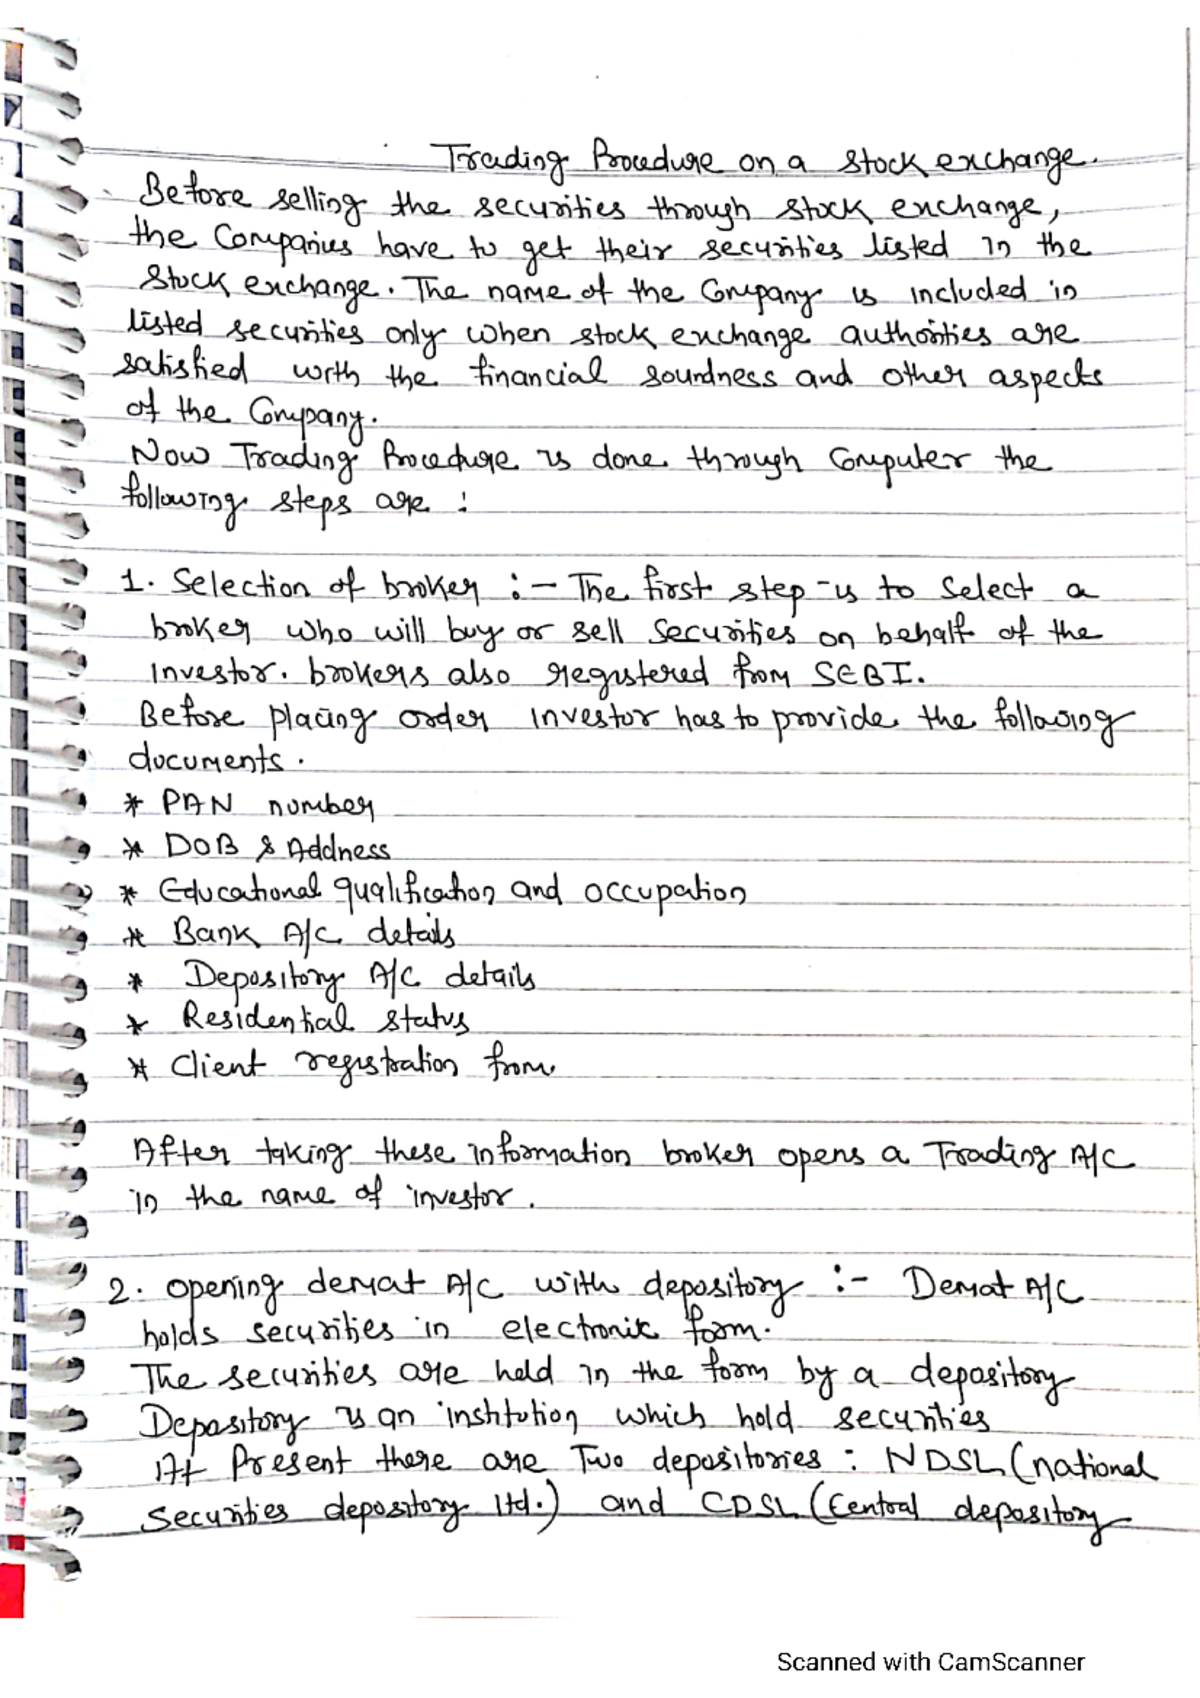 Trading Procedure on a stock exchange.
Before selling the securities through stock exchange,
the Companies have to get their securities listed in the
Stock exchange. The name of the Company is included in
listed securities only when stock exchange authorities are
satisfied with the financial soundness and other aspects
of the Company.
Now Trading Procedure is done through Computer the
following steps are :
1. Selection of broker :- The first step is to Select a
broker who will buy or sell Securities on behalf of the
investor. brokers also registered from SEBI.
Before placing order investor has to provide the following
documents.
* PAN number
* DOB & Address
* Educational qualification and occupation
* Bank A/C details
* Depository A/C details
* Residential status
* Client registration from
After taking these information broker opens a Trading A/C
in the name of investor.
2. opening demat A/C with depository :- Demat A/C
holds securities in electronic form.
The securities are held in the form by a depository
Depository is an institution which hold securities
At Present there are Two depositories : NDSL (national
Securities depository ltd.) and CDSL (Central depository
Scanned with CamScanner